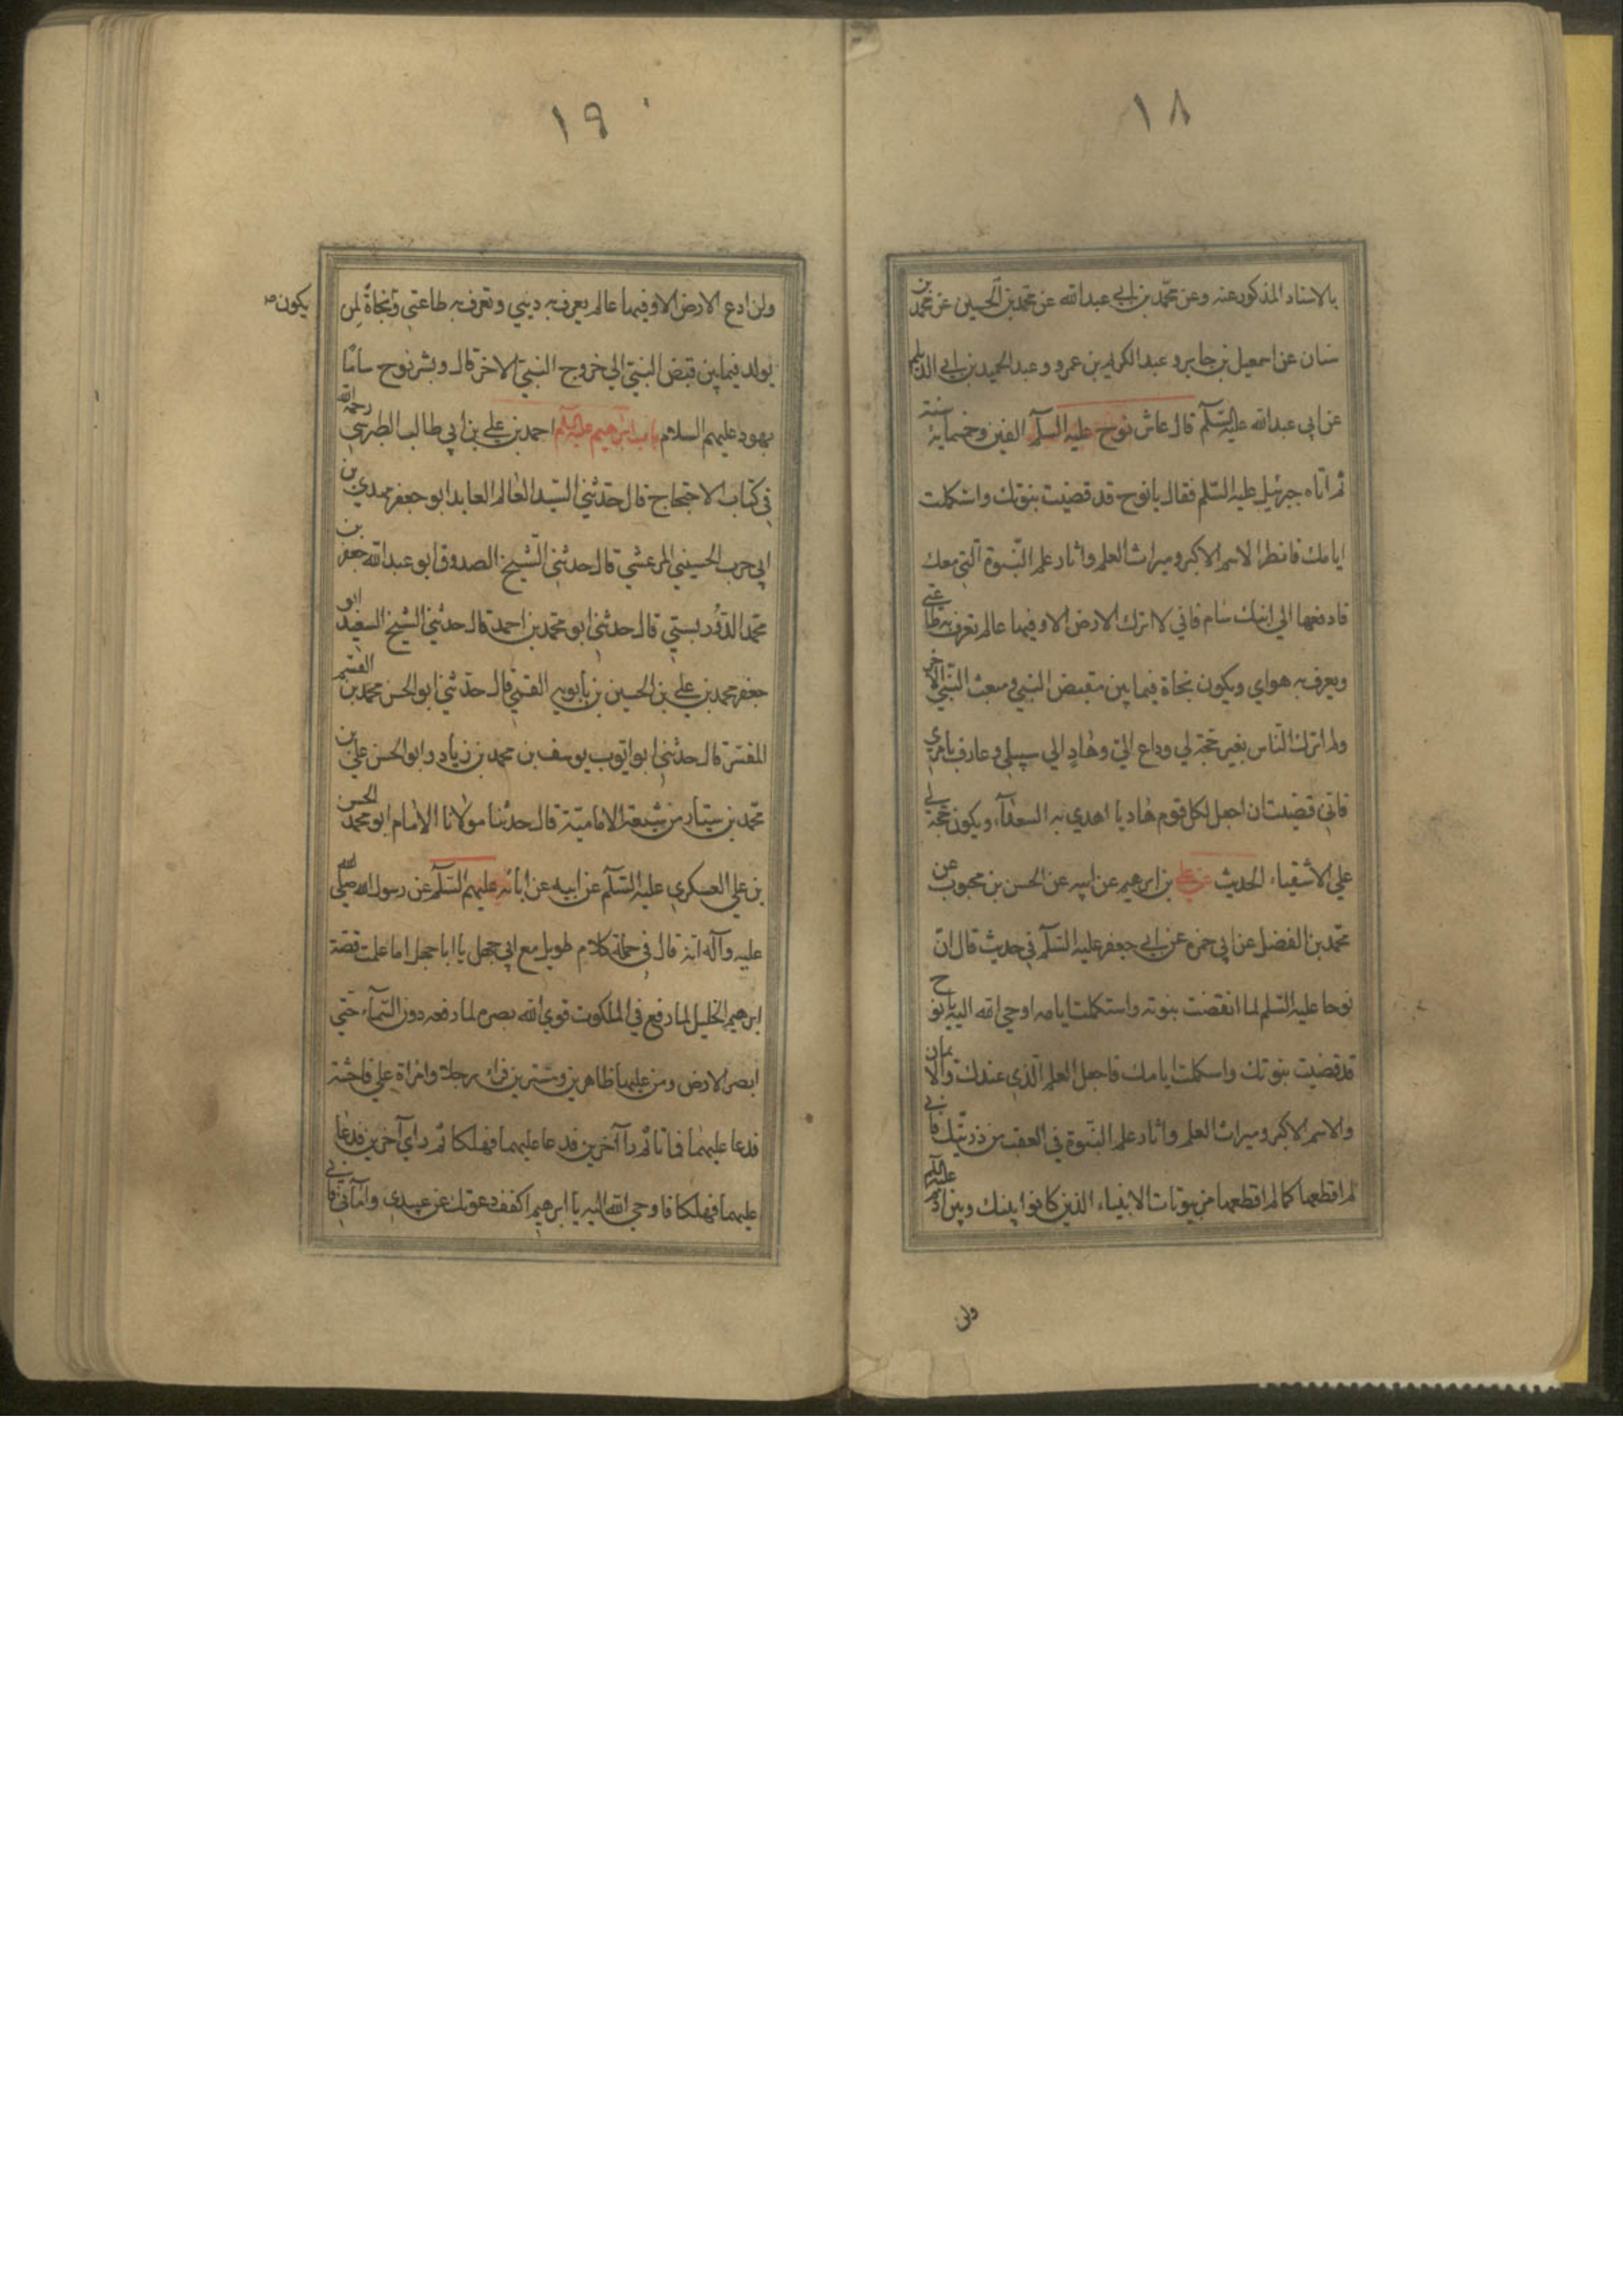 ١٨
بالاسناد المذكور عنه وعن محمّد بن ابي عبدالله عن محمد بن الحسين عن محمّد بن
سنان عن اسمعيل بن جابر و عبد الكريم بن عمرو و عبد الحميد بن ابي الديلم
عن ابي عبدالله عليه السّلم قال عاش نوح عليه السلم الفين وخمسماية سنة
ثم اتاه جبرئيل عليه السّلم فقال يا نوح قد قضيت نبوتك واستكملت
ايامك فانظر الاسم الاكبر وميراث العلم واثار علم النّبوة التي معك
فادفعها الي ابنك سام فاني لا اترك الارض الا وفيها عالم تعرف به طاعتي
ويعرف به هواي ويكون نجاة فيما بين مقبض النبي ومبعث النّبي الآخر
ولم اترك الناس بغير حجة لي وداع اليّ وهادٍ الي سبيلي وعارف بامري
فاني قضيت ان اجعل لكل قوم هاديا اهدي به السعدآء ويكون حجة لي
علي الاشقياء الحديث عن علي بن ابرهيم عن ابيه عن الحسن بن محبوب عن
محمّد بن الفضل عن ابي حمزه عن ابي جعفر عليه السّلم في حديث قال انّ
نوحا عليه السّلم لما انقضت نبوته واستكملت ايامه اوحي الله اليه يا نوح
قد قضيت نبوتك واسكملت ايامك فاجعل العلم الّذي عندك والايمان
والاسم الاكبر وميراث العلم واثار علم النّبوة في العقب من ذريّتك فاني
لم اقطعها كما لم اقطعها من بيوتات الانبياء الذين كانوا بينك وبين ادم عليه السلم
ولن
١٩
ولن ادع الارض الا وفيها عالم يعرف به ديني وتعرف به طاعتي ونجاةً لمن
يكون
يولد فيما بين قبض النبيّ الي خروج النبيّ الاخر قال وبشر نوح ساما
بهود عليهم السلام باب ابرهيم عليه السلم احمد بن علي بن ابي طالب الطبرسي رحمه الله
في كتاب الاحتجاج قال حدثني السّيد العالم العابد ابو جعفر مهدي بن
ابي حرب الحسيني المرعشي قال حدثني الشّيخ الصدوق ابو عبدالله جعفر بن
محمّد الدّوُربستي قال حدثني ابو محمد بن احمد قال حدثني الشيخ السعيد ابو
جعفر محمد بن علي بن الحسين بن بابويه القمّي قال حدّثني ابو الحسن محمد بن القسم
المفسّر قال حدثني ابو ايّوب يوسف بن محمد بن زياد وابو الحسن علي بن
محمّد بن سيّار من شيعة الاماميّة قال حدثنا مولانا الامام ابو محمد الحسن
بن علي العسكري عليه السّلم عن ابيه عن ابائه عليهم السّلم عن رسول الله صلّي الله
عليه وآله انه قال في جملة كلام طويل مع ابي جهل يا ابا جهل اما علمت قصّة
ابرهيم الخليل لما رفع في الملكوت قوي الله بصره لما رفعه دون السّمآء حتي
ابصر الارض ومن عليها ظاهرين ومستترين فرأي رجلا وامراة علي فاحشة
فدعا عليهما فماتا ثم رآ آخرين فدعا عليهما فهلكا ثم راي آخرين فدعا
عليهما فهلكا فاوحي الله اليه يا ابرهيم اكفف دعوتك عن عبيدي وامآئي فاني